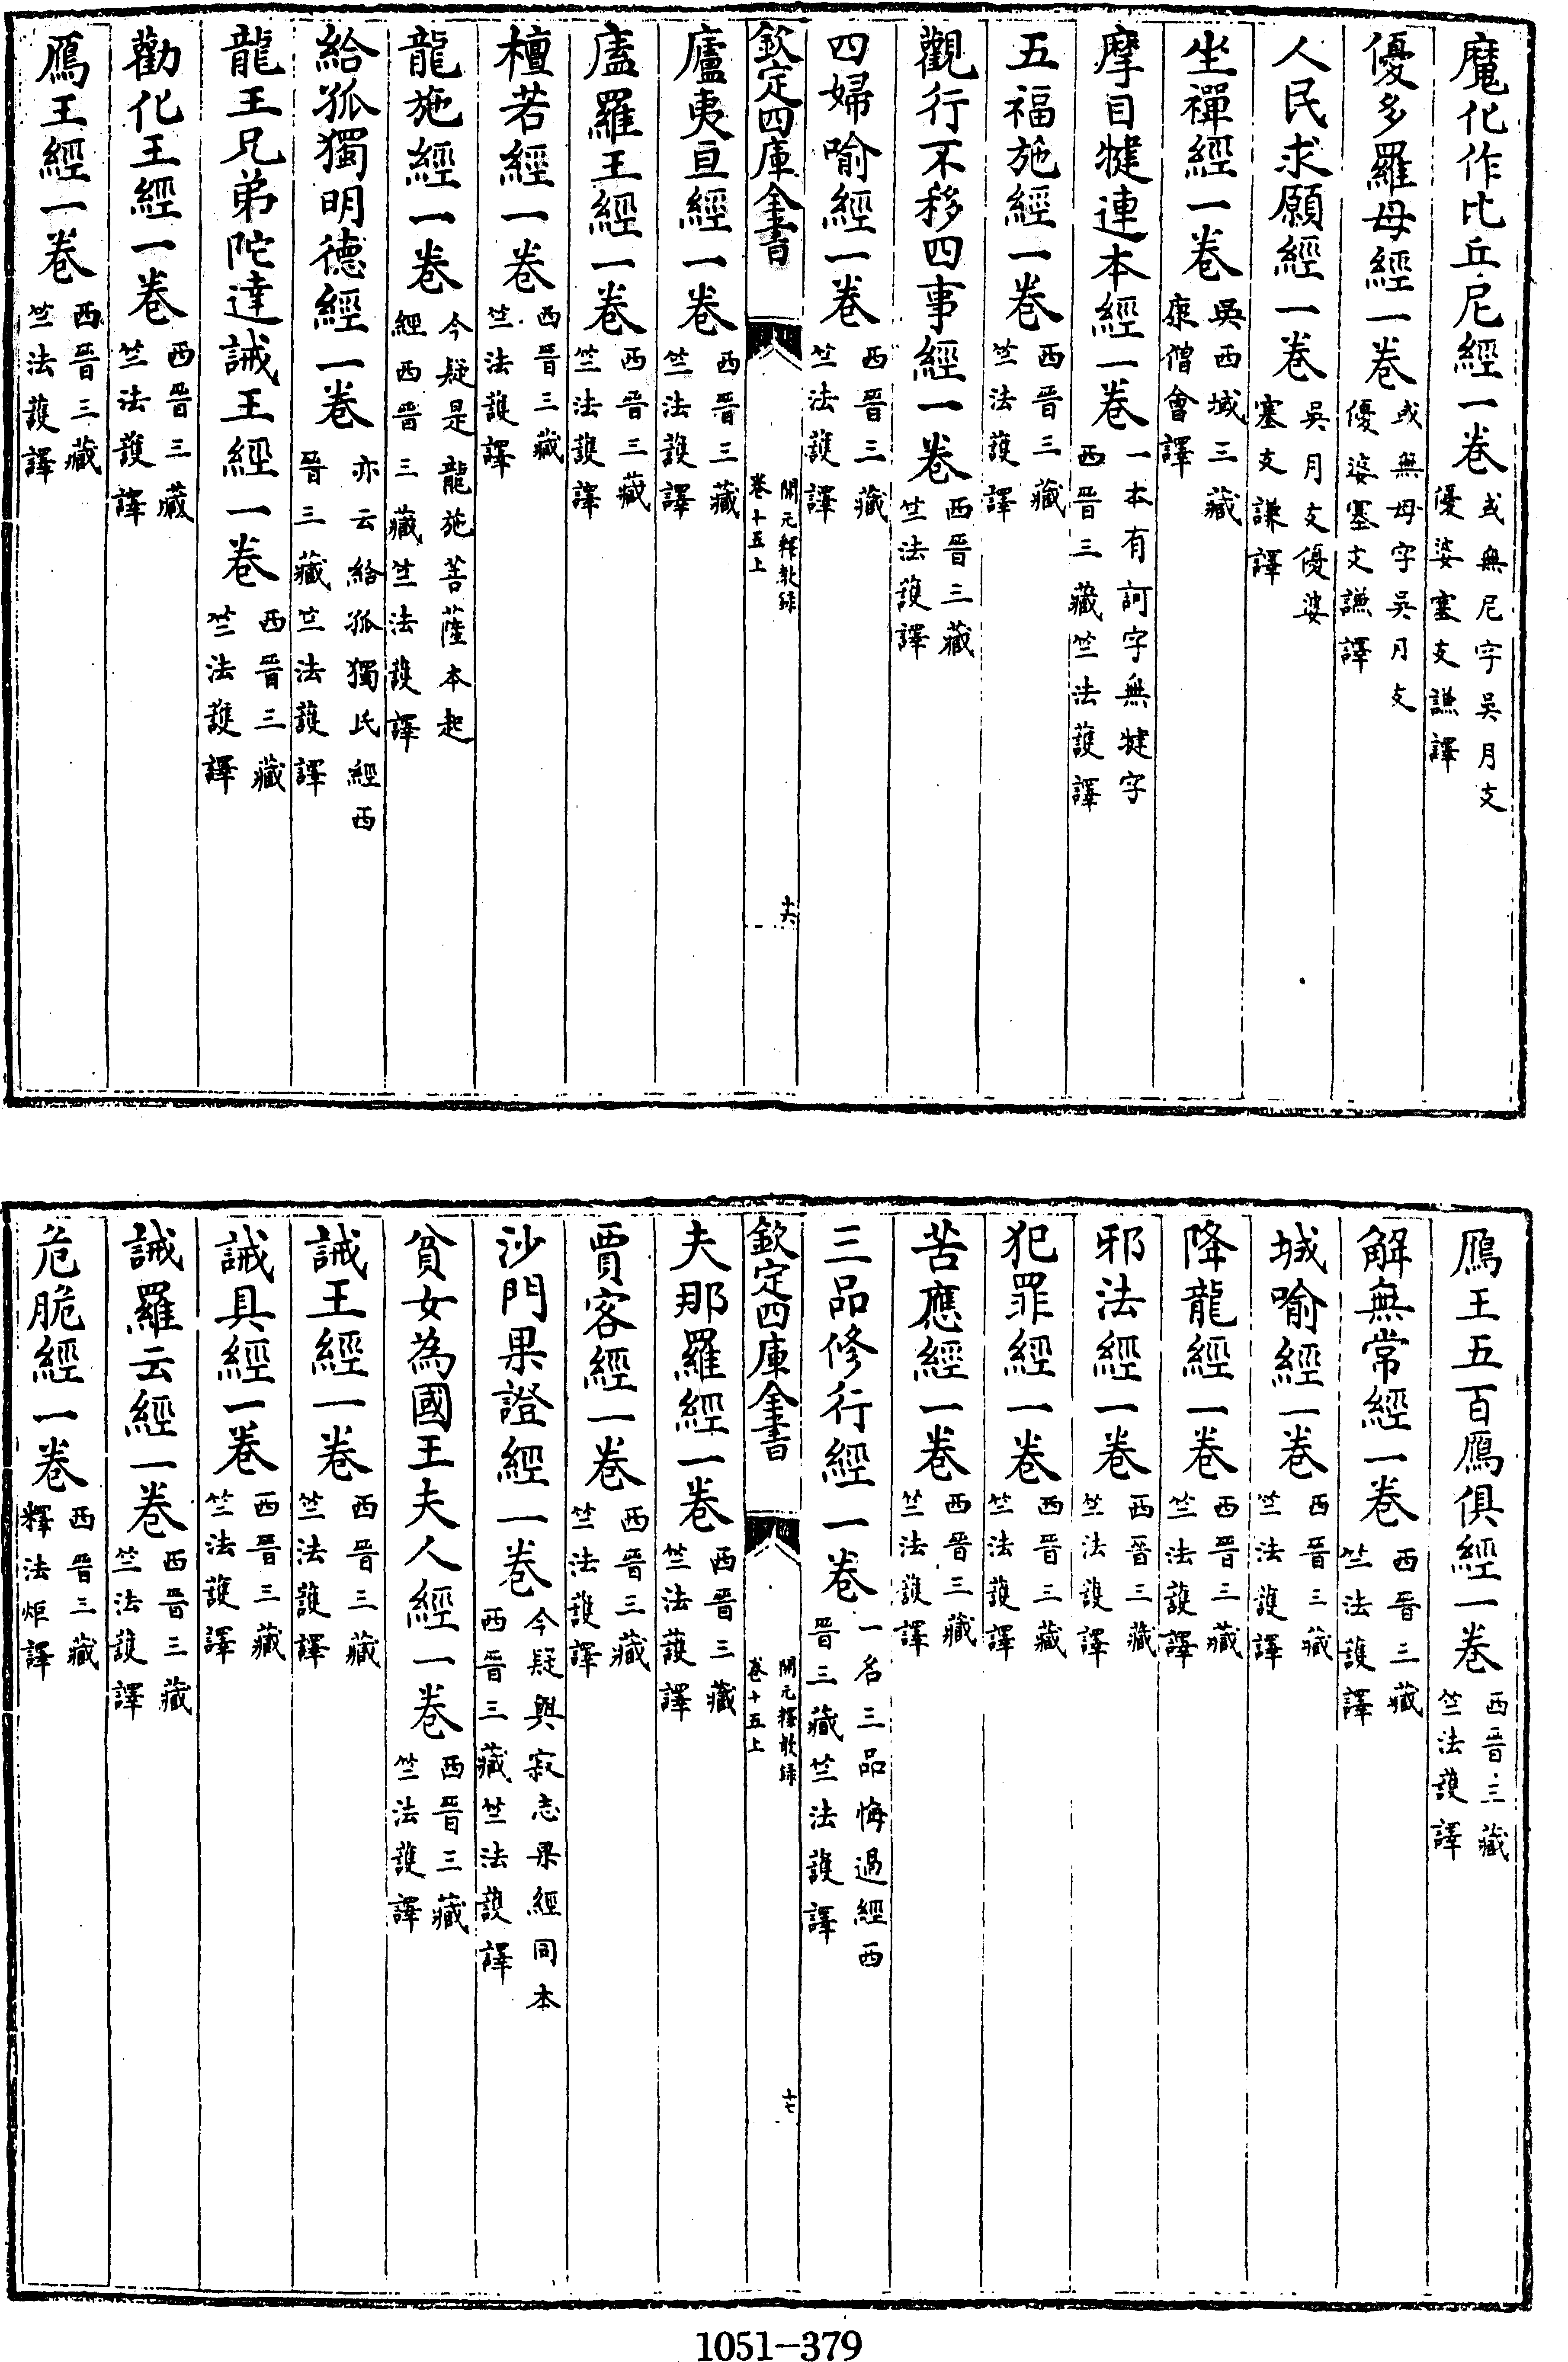 魔化作比丘尼經一卷或無尼字吳月支優婆塞支謙譯
優多羅母經一卷或無母字吳月支優婆塞支謙譯
人民求願經一卷吳月支優婆塞支謙譯
坐禪經一卷吳西域三藏康僧會譯
摩目犍連本經一卷一本有訶字無犍字西晉三藏竺法護譯
五福施經一卷西晉三藏竺法護譯
觀行不移四事經一卷西晉三藏竺法護譯
四婦喻經一卷西晉三藏竺法護譯
欽定四庫全書
開元釋教錄
卷十五上
十六
廬夷亘經一卷西晉三藏竺法護譯
廬羅王經一卷西晉三藏竺法護譯
檀若經一卷西晉三藏竺法護譯
龍施經一卷今疑是龍施菩薩本起經西晉三藏竺法護譯
給孤獨明德經一卷亦云給孤獨氏經西晉三藏竺法護譯
龍王兄弟陀達誡王經一卷西晉三藏竺法護譯
勸化王經一卷西晉三藏竺法護譯
鴈王經一卷西晉三藏竺法護譯
鴈王五百鴈俱經一卷西晉三藏竺法護譯
解無常經一卷西晉三藏竺法護譯
城喻經一卷西晉三藏竺法護譯
降龍經一卷西晉三藏竺法護譯
邪法經一卷西晉三藏竺法護譯
犯罪經一卷西晉三藏竺法護譯
苦應經一卷西晉三藏竺法護譯
三品修行經一卷一名三品悔過經西晉三藏竺法護譯
欽定四庫全書
開元釋教錄
卷十五上
十七
夫那羅經一卷西晉三藏竺法護譯
賈客經一卷西晉三藏竺法護譯
沙門果證經一卷今疑與寂志果經同本西晉三藏竺法護譯
貧女為國王夫人經一卷西晉三藏竺法護譯
誡王經一卷西晉三藏竺法護譯
誡具經一卷西晉三藏竺法護譯
誡羅云經一卷西晉三藏竺法護譯
危脆經一卷西晉三藏釋法炬譯
1051-379